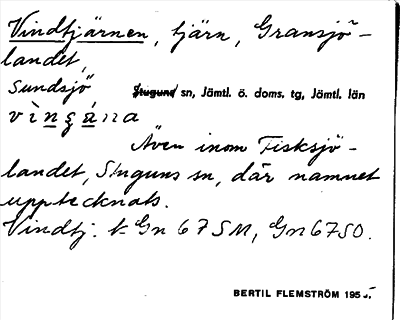 Vindtjärnen, tjärn, Gransjö-
landet,
Sundsjö Stuguns sn, Jämtl. ö. doms. tg, Jämtl. län
Även inom Fisksjö-
landet, Stuguns sn, där namnet
upptecknats.
Vindtj. t Gn 67 SM, Gn 67 SO.
BERTIL FLEMSTRÖM 195